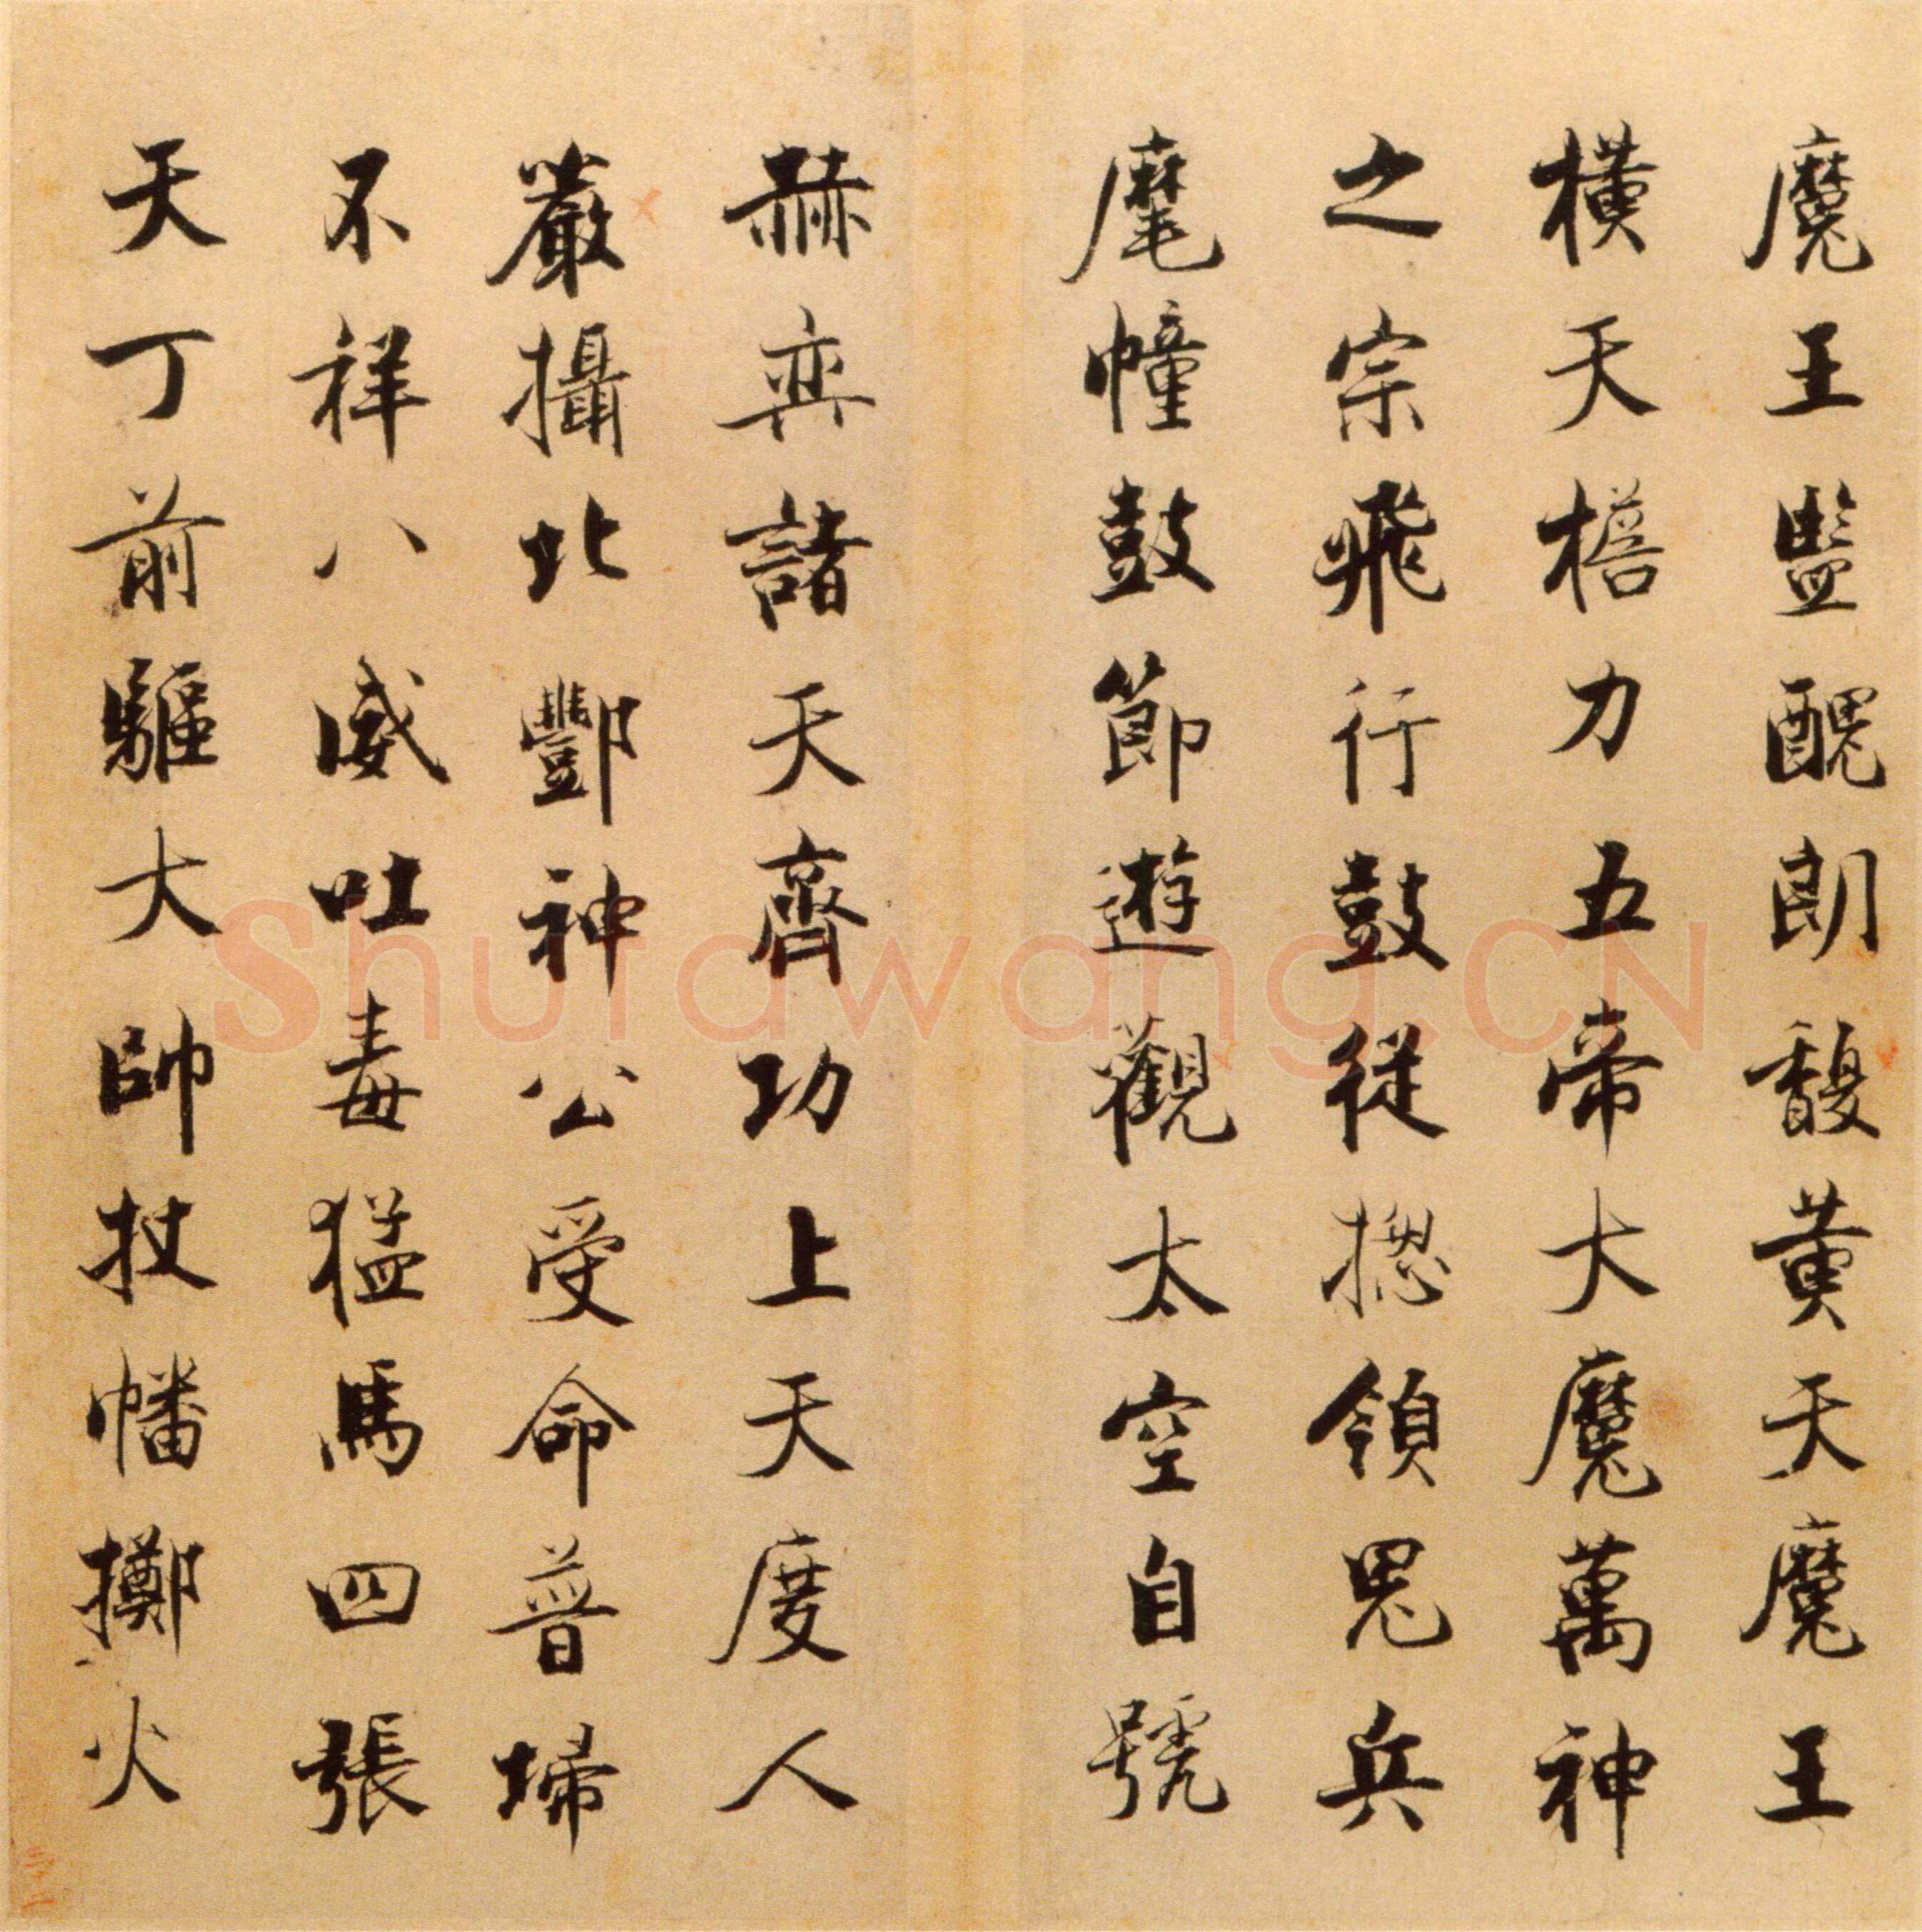 魔王監醜朗馥黄天魔王
横天檐力五帝大魔萬神
之宗飛行鼓從揔領鬼兵
麾幢鼓節遊觀太空自號
赫弈諸天齊功上天度人
嚴攝北酆神公受命普掃
不祥八威吐毒猛馬四張
天丁前驅大帥杖幡擲火
Shufawang.CN